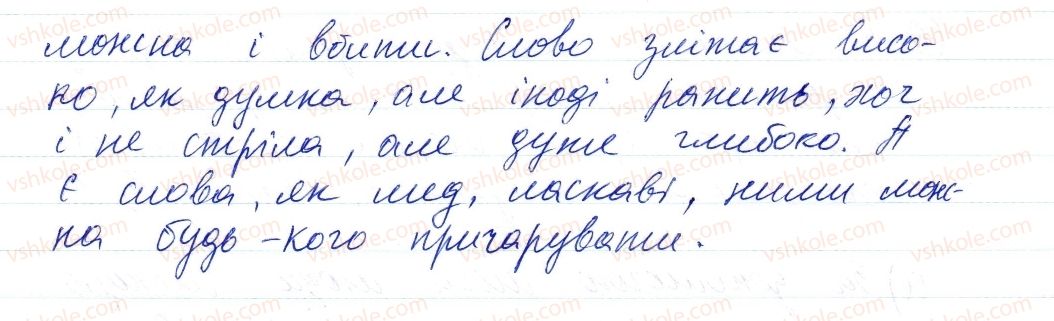 можна і вбити. Слово злітає висо-
ко, як думка, але іноді ранить, хоч
і не стріла, але дуже глибоко. А
є слова, як мед, ласкаві, ними мож-
на будь-кого причарувати.